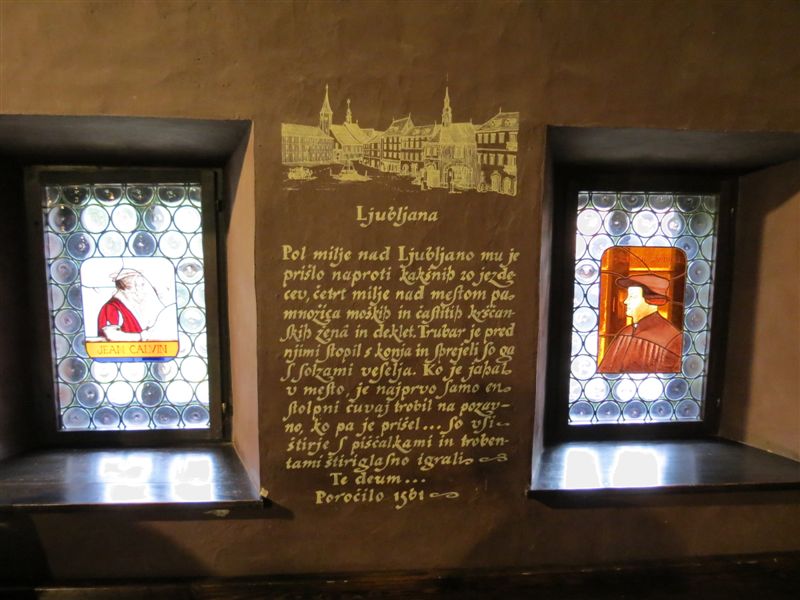 Ljubljana
Pol milje nad Ljubljano mu je
prišlo naproti kakšnih 20 jezde-
cev, četrt milje nad mestom pa
množica moških in častitih krščan-
skih žená in deklet. Trubar je pred
njimi stopil s konja in sprejeli so ga
s solzami veselja. Ko je jahal
v mesto, je najprvo samo en
stolpni čuvaj trobil na pozav-
no, ko pa je prišel... so vsi
štirje s piščalkami in troben-
tami štiriglasno igrali
Te deum...
Poročilo 1561
JEAN CALVIN